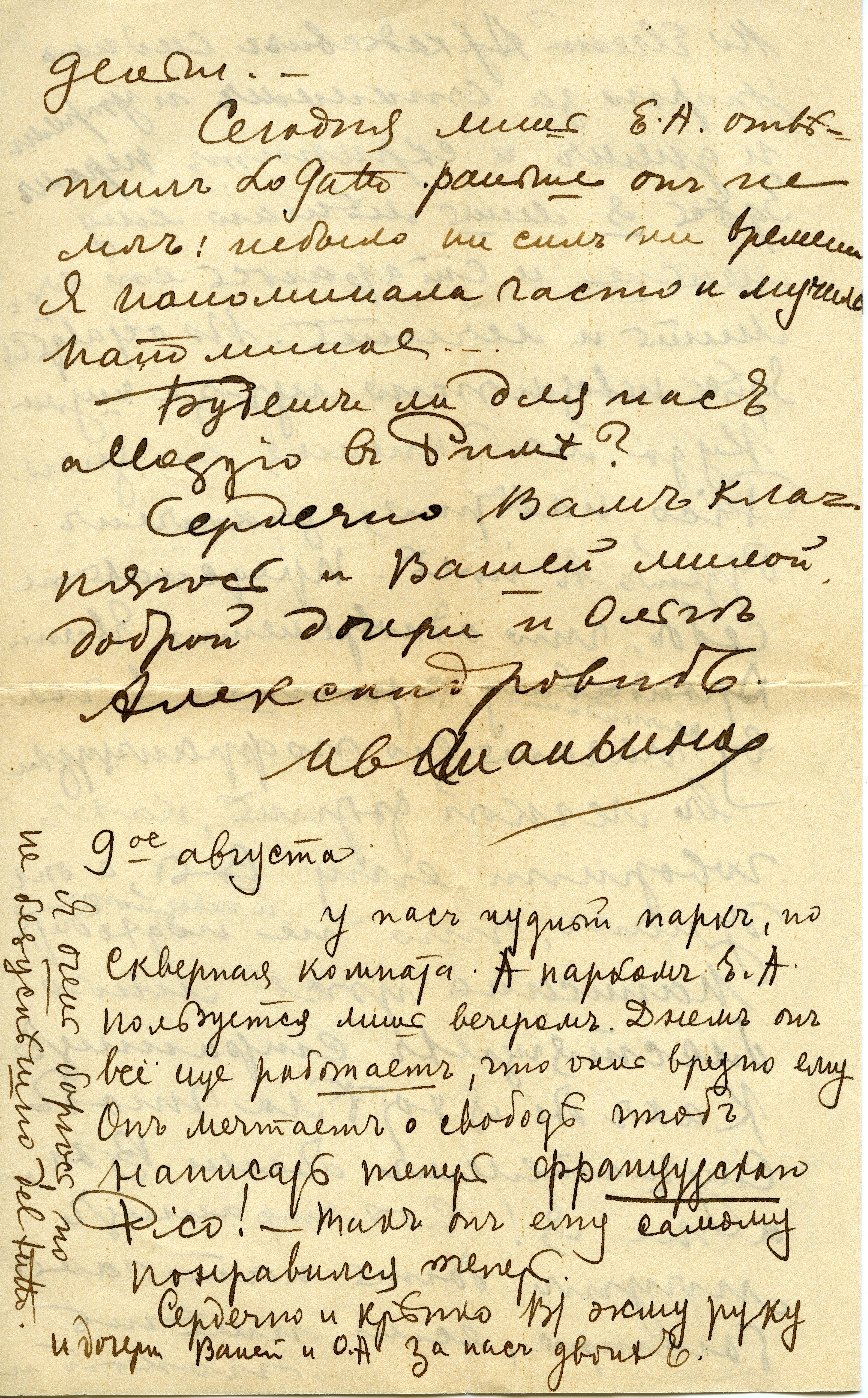 деньги. –
Сегодня лишь Е.А. отвѣ-
тилъ Lo Gatto. раньше онъ не
могъ! небыло ни силъ ни времени
Я напоминала часто и мучила
напоминая...
Будетъ ли для насъ
alloggio въ Римѣ?
Сердечно Вамъ кла-
няюсь и Вашей милой,
доброй дочери и Ольгѣ
Александровнѣ.
9ое августа
У насъ чудный паркъ, но
скверная комната. А паркомъ Е.А.
пользуется лишь вечеромъ. Днемъ онъ
всё еще работаетъ, что очень вредно ему
Онъ мечтаетъ о свободѣ чтобъ
написать теперь французскаго
Pico! – такъ онъ ему самому
понравился теперь.
Сердечно и крѣпко жму руку
и дочери Вашей и О.А за насъ двоихъ.
Я очень борюсь но
не безуспѣшно del tutto.